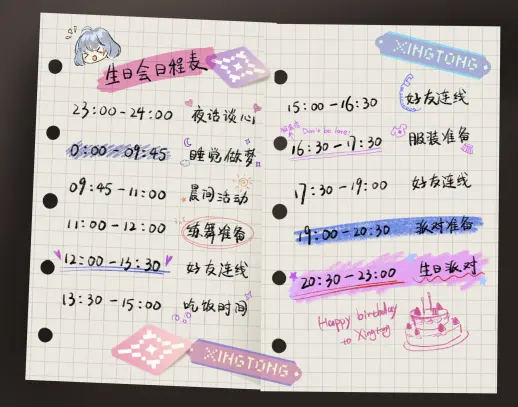 生日会日程表
23:00-24:00 夜话谈心
0:00-09:45 睡觉做梦
09:45-11:00 晨间活动
11:00-12:00 练舞准备
12:00-13:30 好友连线
13:30-15:00 吃饭时间
XINGTONG
XINGTONG
15:00-16:30 好友连线
Don't be late!
16:30-17:30 服装准备
17:30-19:00 好友连线
19:00-20:30 派对准备
20:30-23:00 生日派对
Happy birthday
to Xingtong